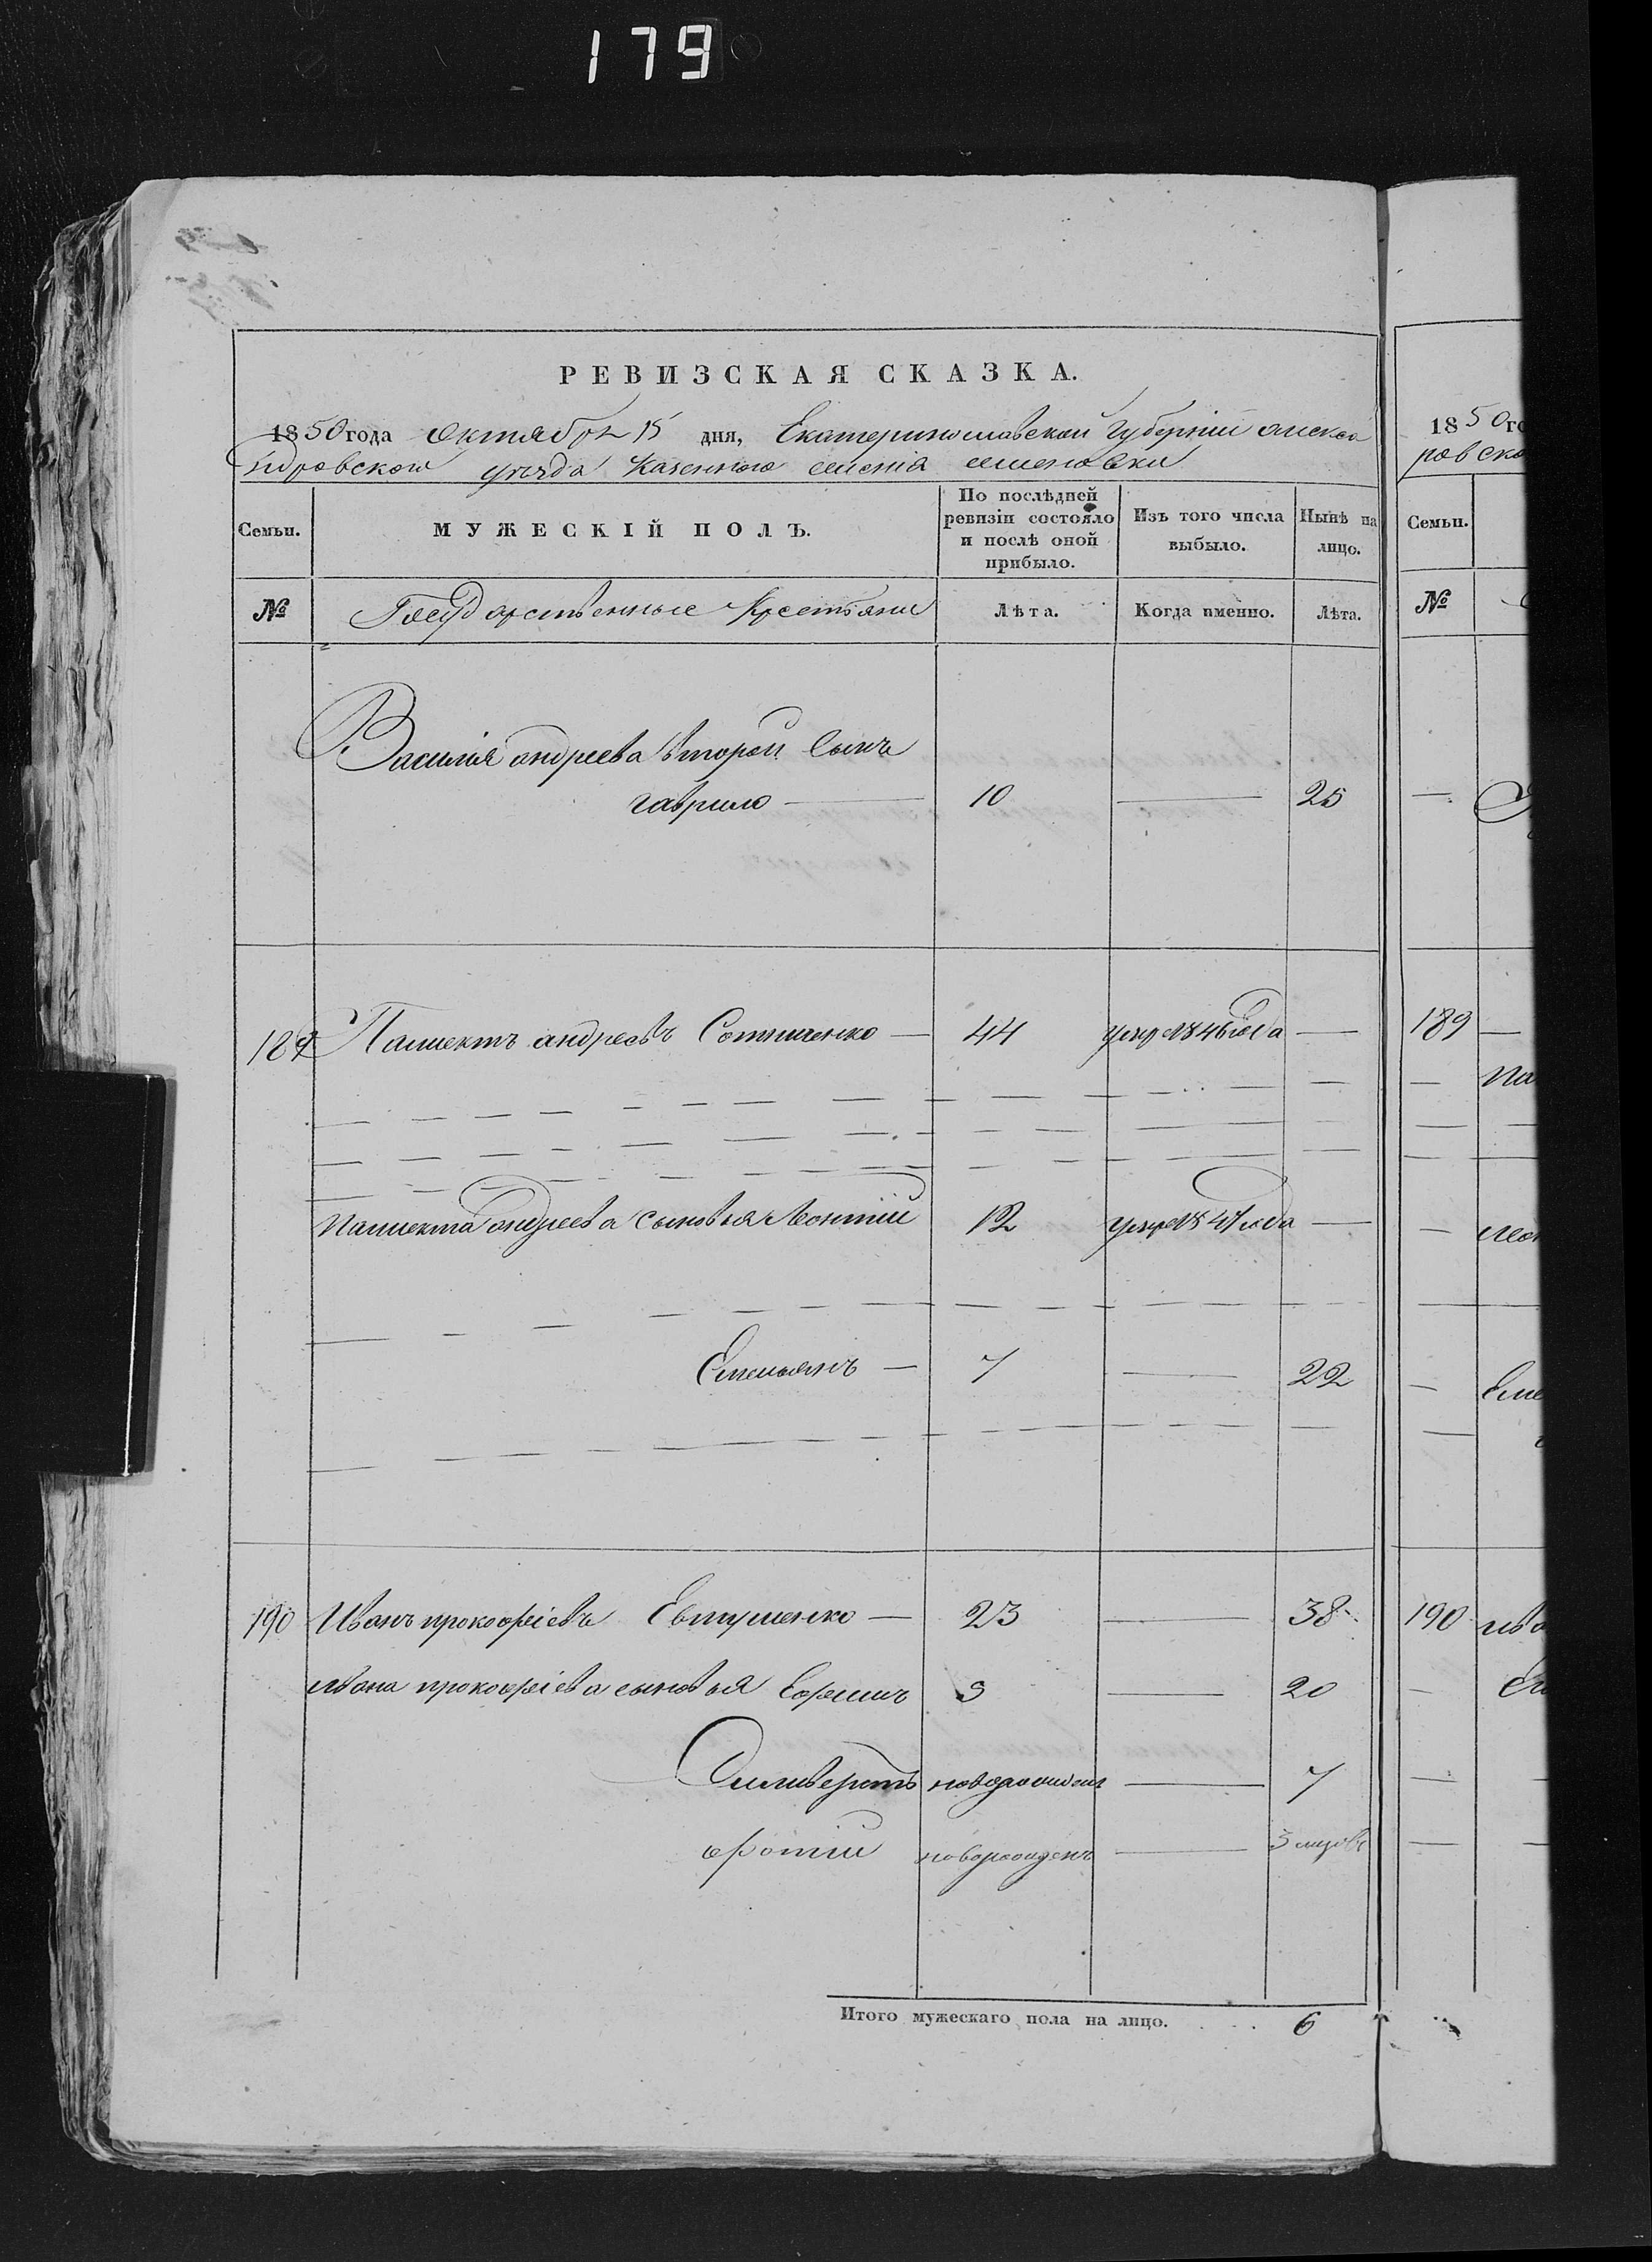 179
РЕВИЗСКАЯ СКАЗКА.
1850 года октября 15 дня, Екатеринославской Губерніи алекса
ндровского уезда казенного селенія семеновки
Семьи. МУЖЕСКІЙ ПОЛЪ. По послѣдней ревизіи состояло и послѣ оной прибыло. Изъ того числа выбыло. Нынѣ на лицо.
№ Государственные Крестьяне Лѣта. Когда именно. Лѣта.
Василія андреева второй Сынъ
гаврило — 10 — 25
189 андреевъ — 44 умре 1846 года —
андреева сыновья Леонтій 12 умре 184 года —
Емельянъ — 7 — 22
190 Иванъ прокофіевъ Евтушенко — 23 — 38
ивана прокофіева сыновья Ефимъ 5 — 20
Селиверстъ новорожденъ — 7
фотій новорожденъ — 3 
Итого мужескаго пола на лицо. . . . 6
1850 го
ровско
Семьи.
№
—
189 —
—
—
— леон
— Еме
—
190 ива
—
—
—